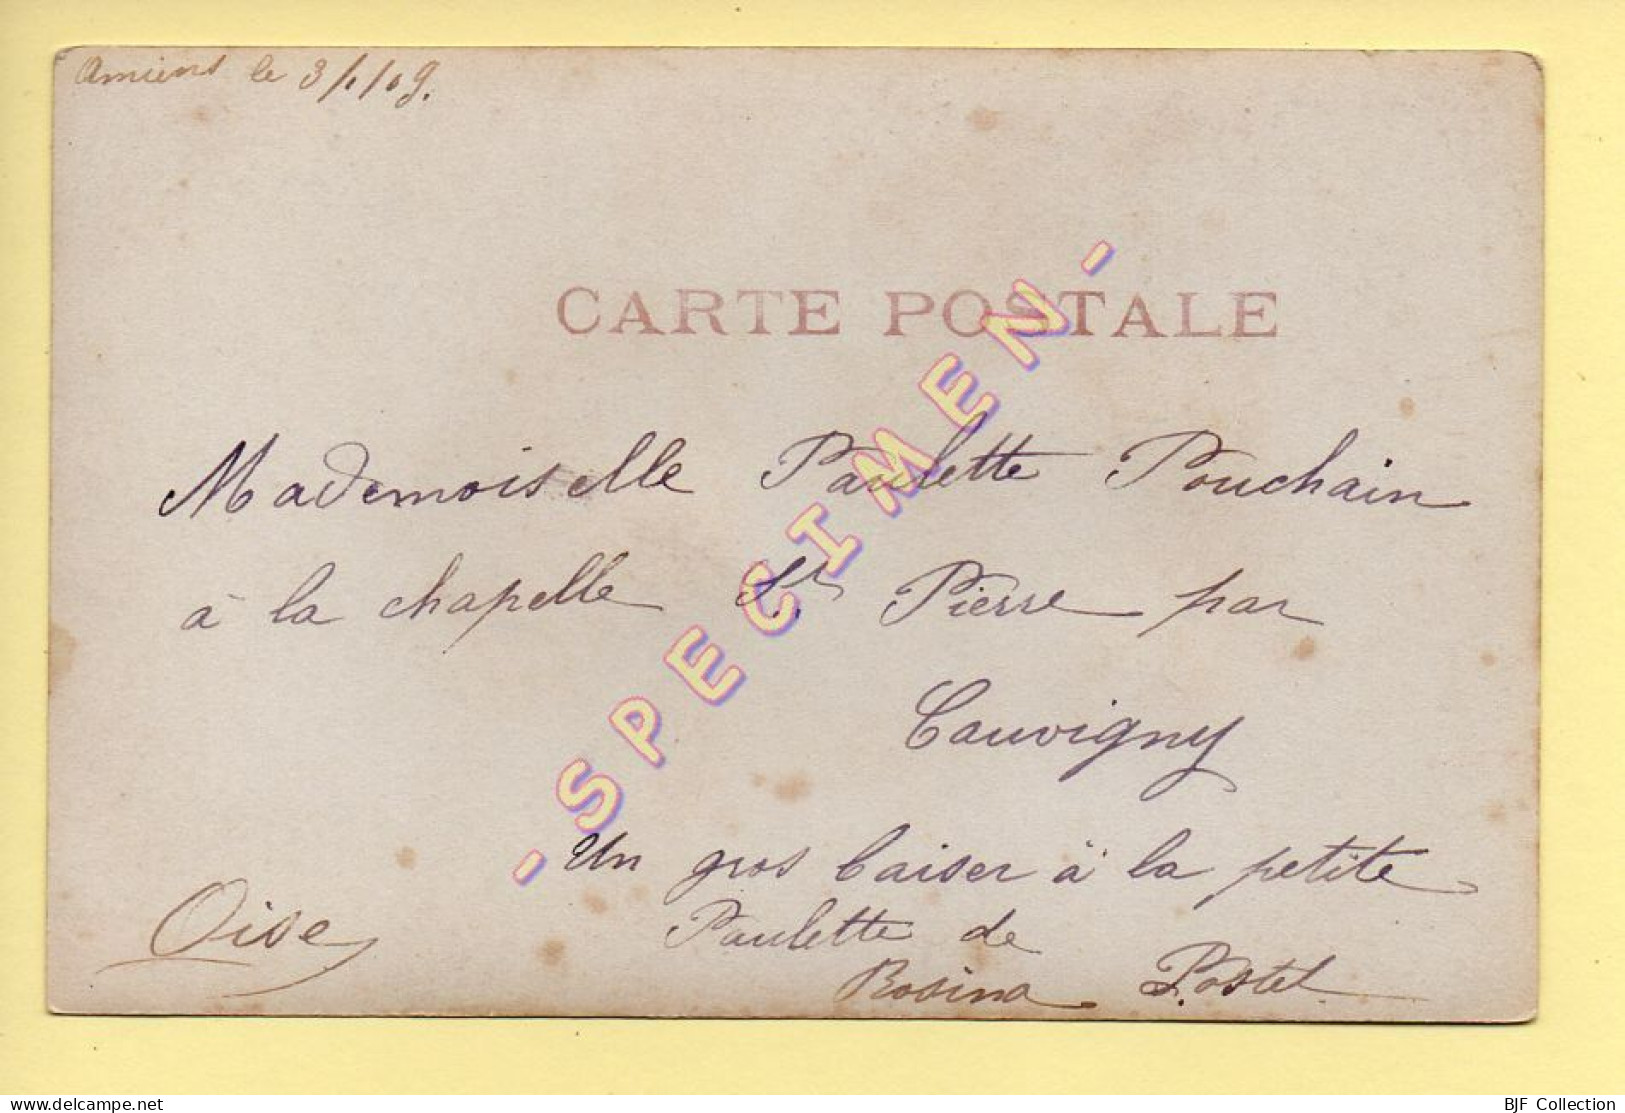 Amiens le 3/1/09.
CARTE POSTALE
- SPECIMEN -
Mademoiselle Paulette Pouchain
à la chapelle St Pierre par
Cauvigny
Oise
Un gros baiser à la petite
Paulette de
Rosina Postel
www.delcampe.net
BJF Collection